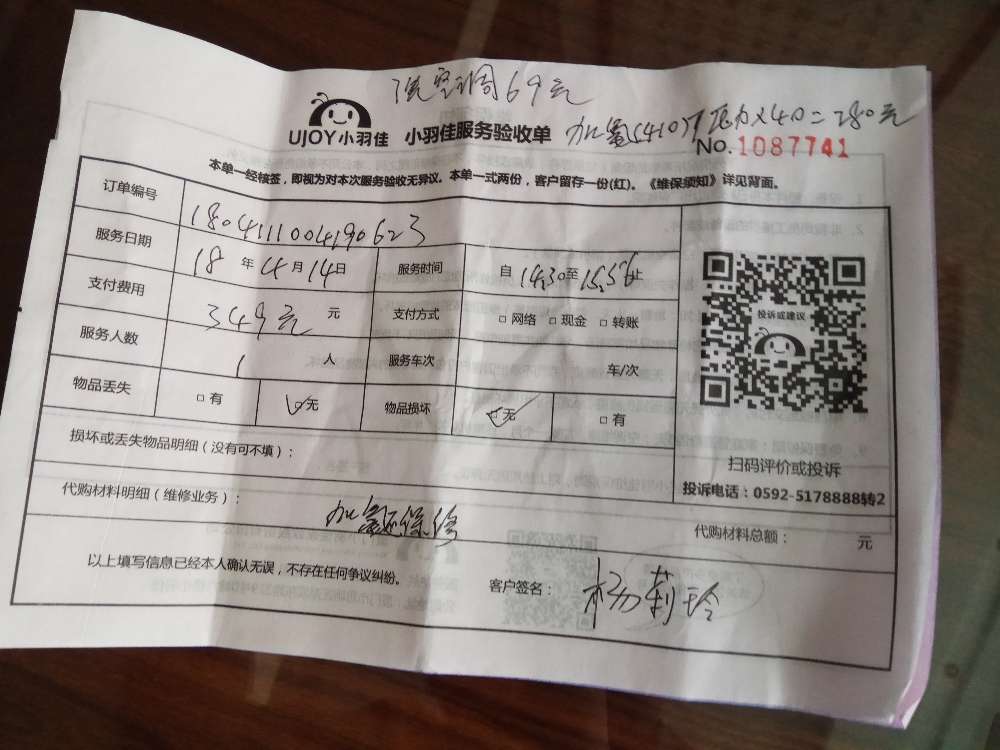 洗空调69元
UJOY小羽佳 小羽佳服务验收单 加氟(410) 7压力×40=280元
No.1087741
本单一经核签，即视为对本次服务验收无异议。本单一式两份，客户留存一份(红)。《维保须知》详见背面。
订单编号 1804111004190623
服务日期 18年4月14日 服务时间 自14.30至15.56止
支付费用 349元 元 支付方式 □网络 □现金 □转账
服务人数 1人 服务车次 车/次
物品丢失 □有 ☑无 物品损坏 ☑无 □有
投诉或建议
扫码评价或投诉
投诉电话：0592-5178888转2
损坏或丢失物品明细（没有可不填）：
代购材料明细（维修业务）： 代购材料总额： 元
加氟不保修
以上填写信息已经本人确认无误，不存在任何争议纠纷。 客户签名：杨莉玲